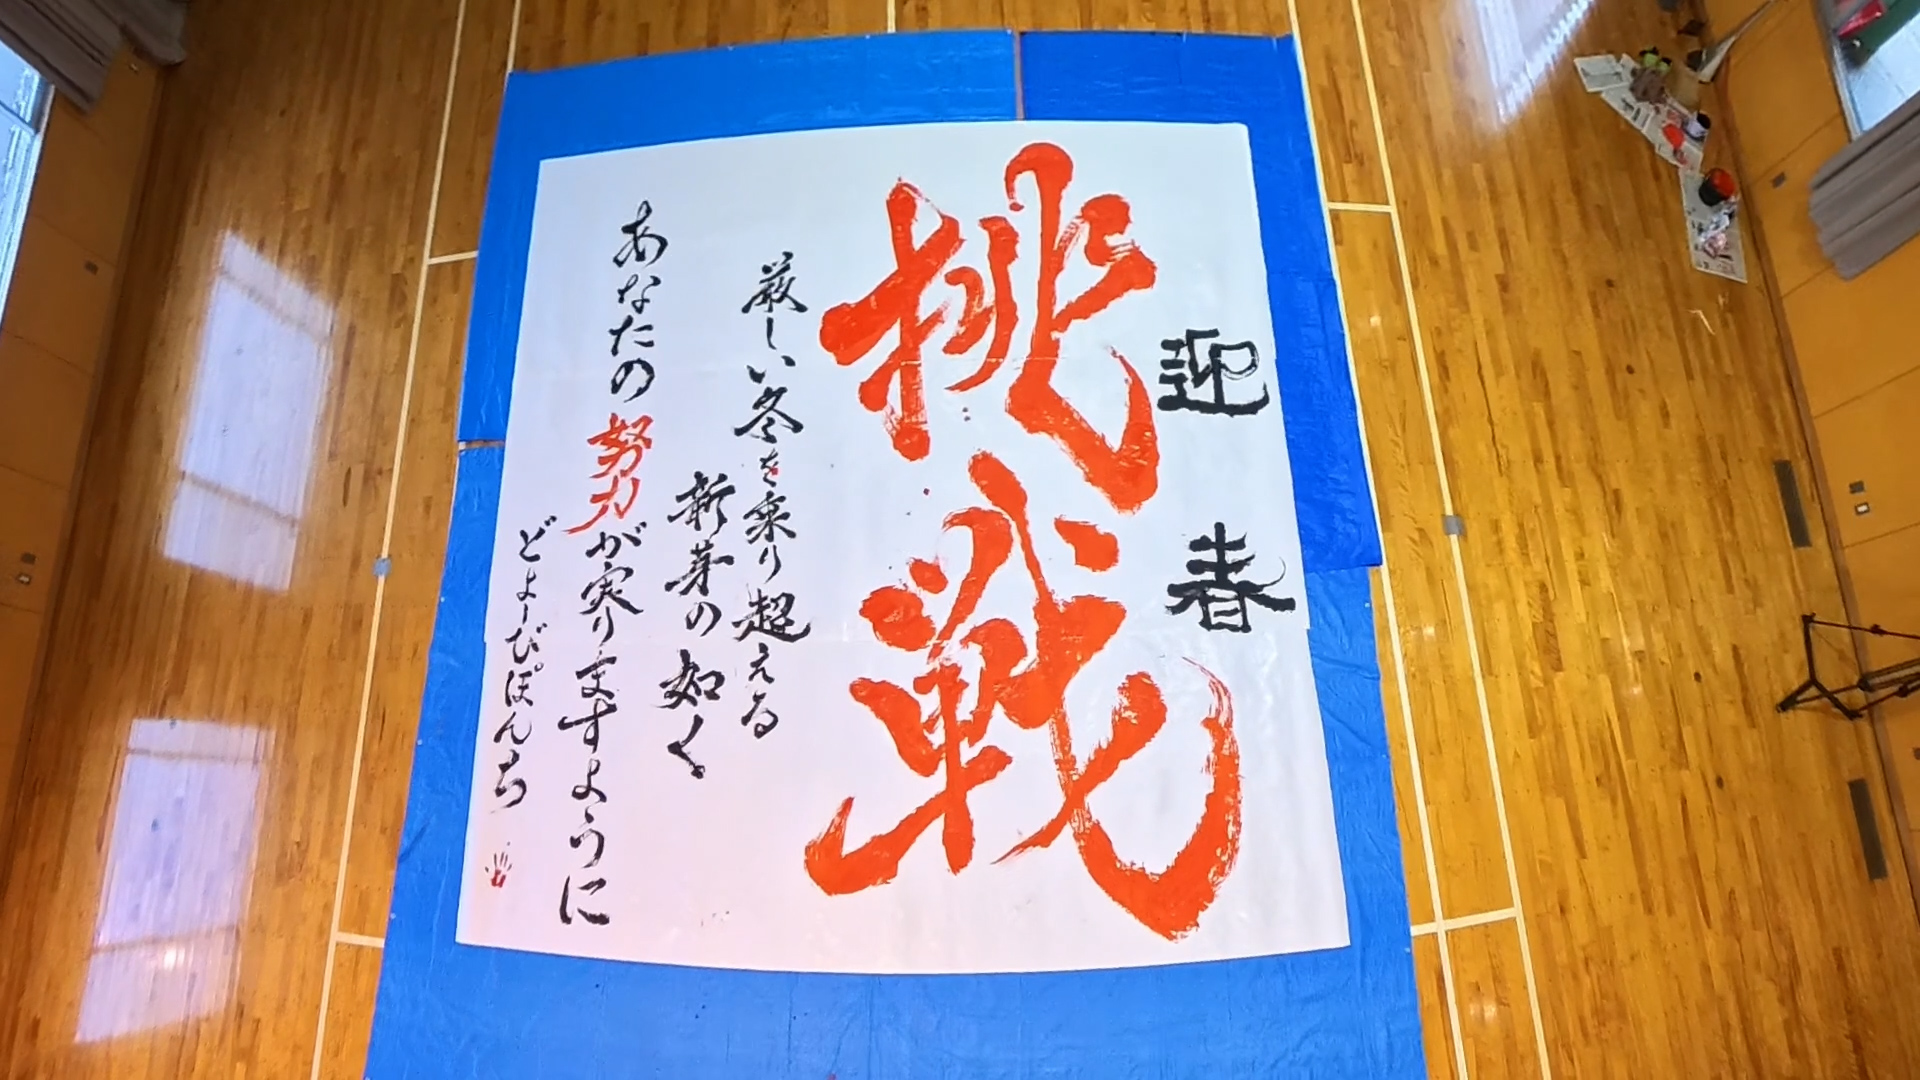 迎春
挑戦
厳しい冬を乗り超える
新芽の如く
あなたの努力が実りますように
どよーびぽんち